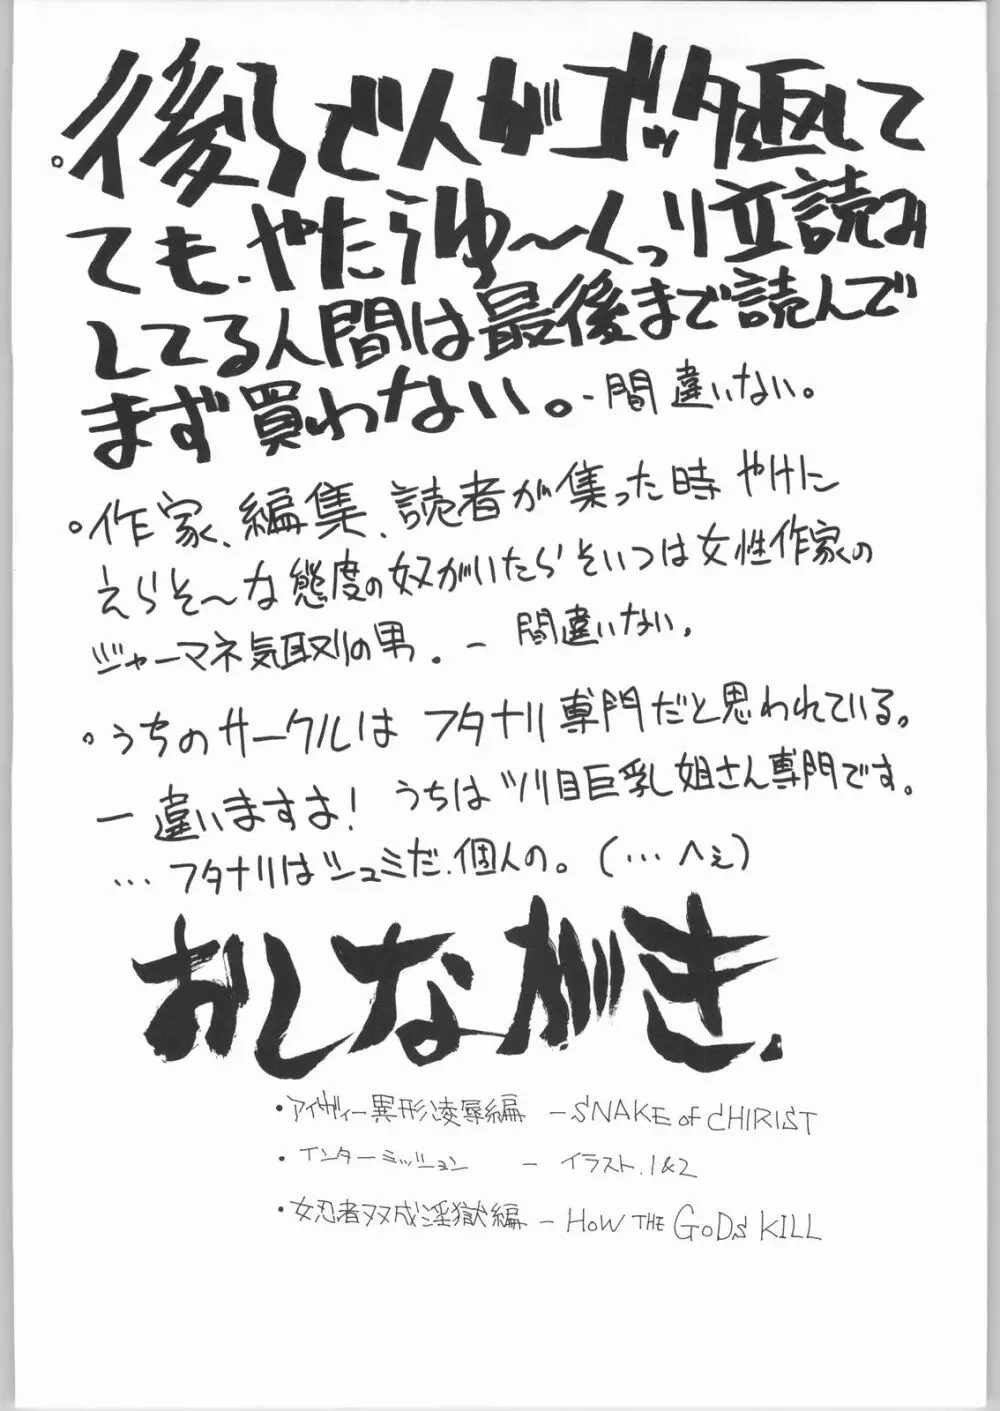 。後ろで人がゴッタ返して
ても、やたらゆ〜くっり立読み
してる人間は最後まで読んで
まず買わない。-間違いない。
。作家、編集、読者が集った時 やけに
えらそ〜な態度の奴がいたらそいつは女性作家の
ジャーマネ気取りの男。- 間違いない。
。うちのサークルは フタナリ専門だと思われている。
ー違いますよ! うちはツリ目巨乳姐さん専門です。
…フタナリはシュミだ.個人の。(…へぇ)
おしながき.
・アイヴィー異形凌辱編 - SNAKE of CHIRIST
・インターミッション - イラスト.1&2
・女忍者双成淫獄編 - HOW THE GODS KILL